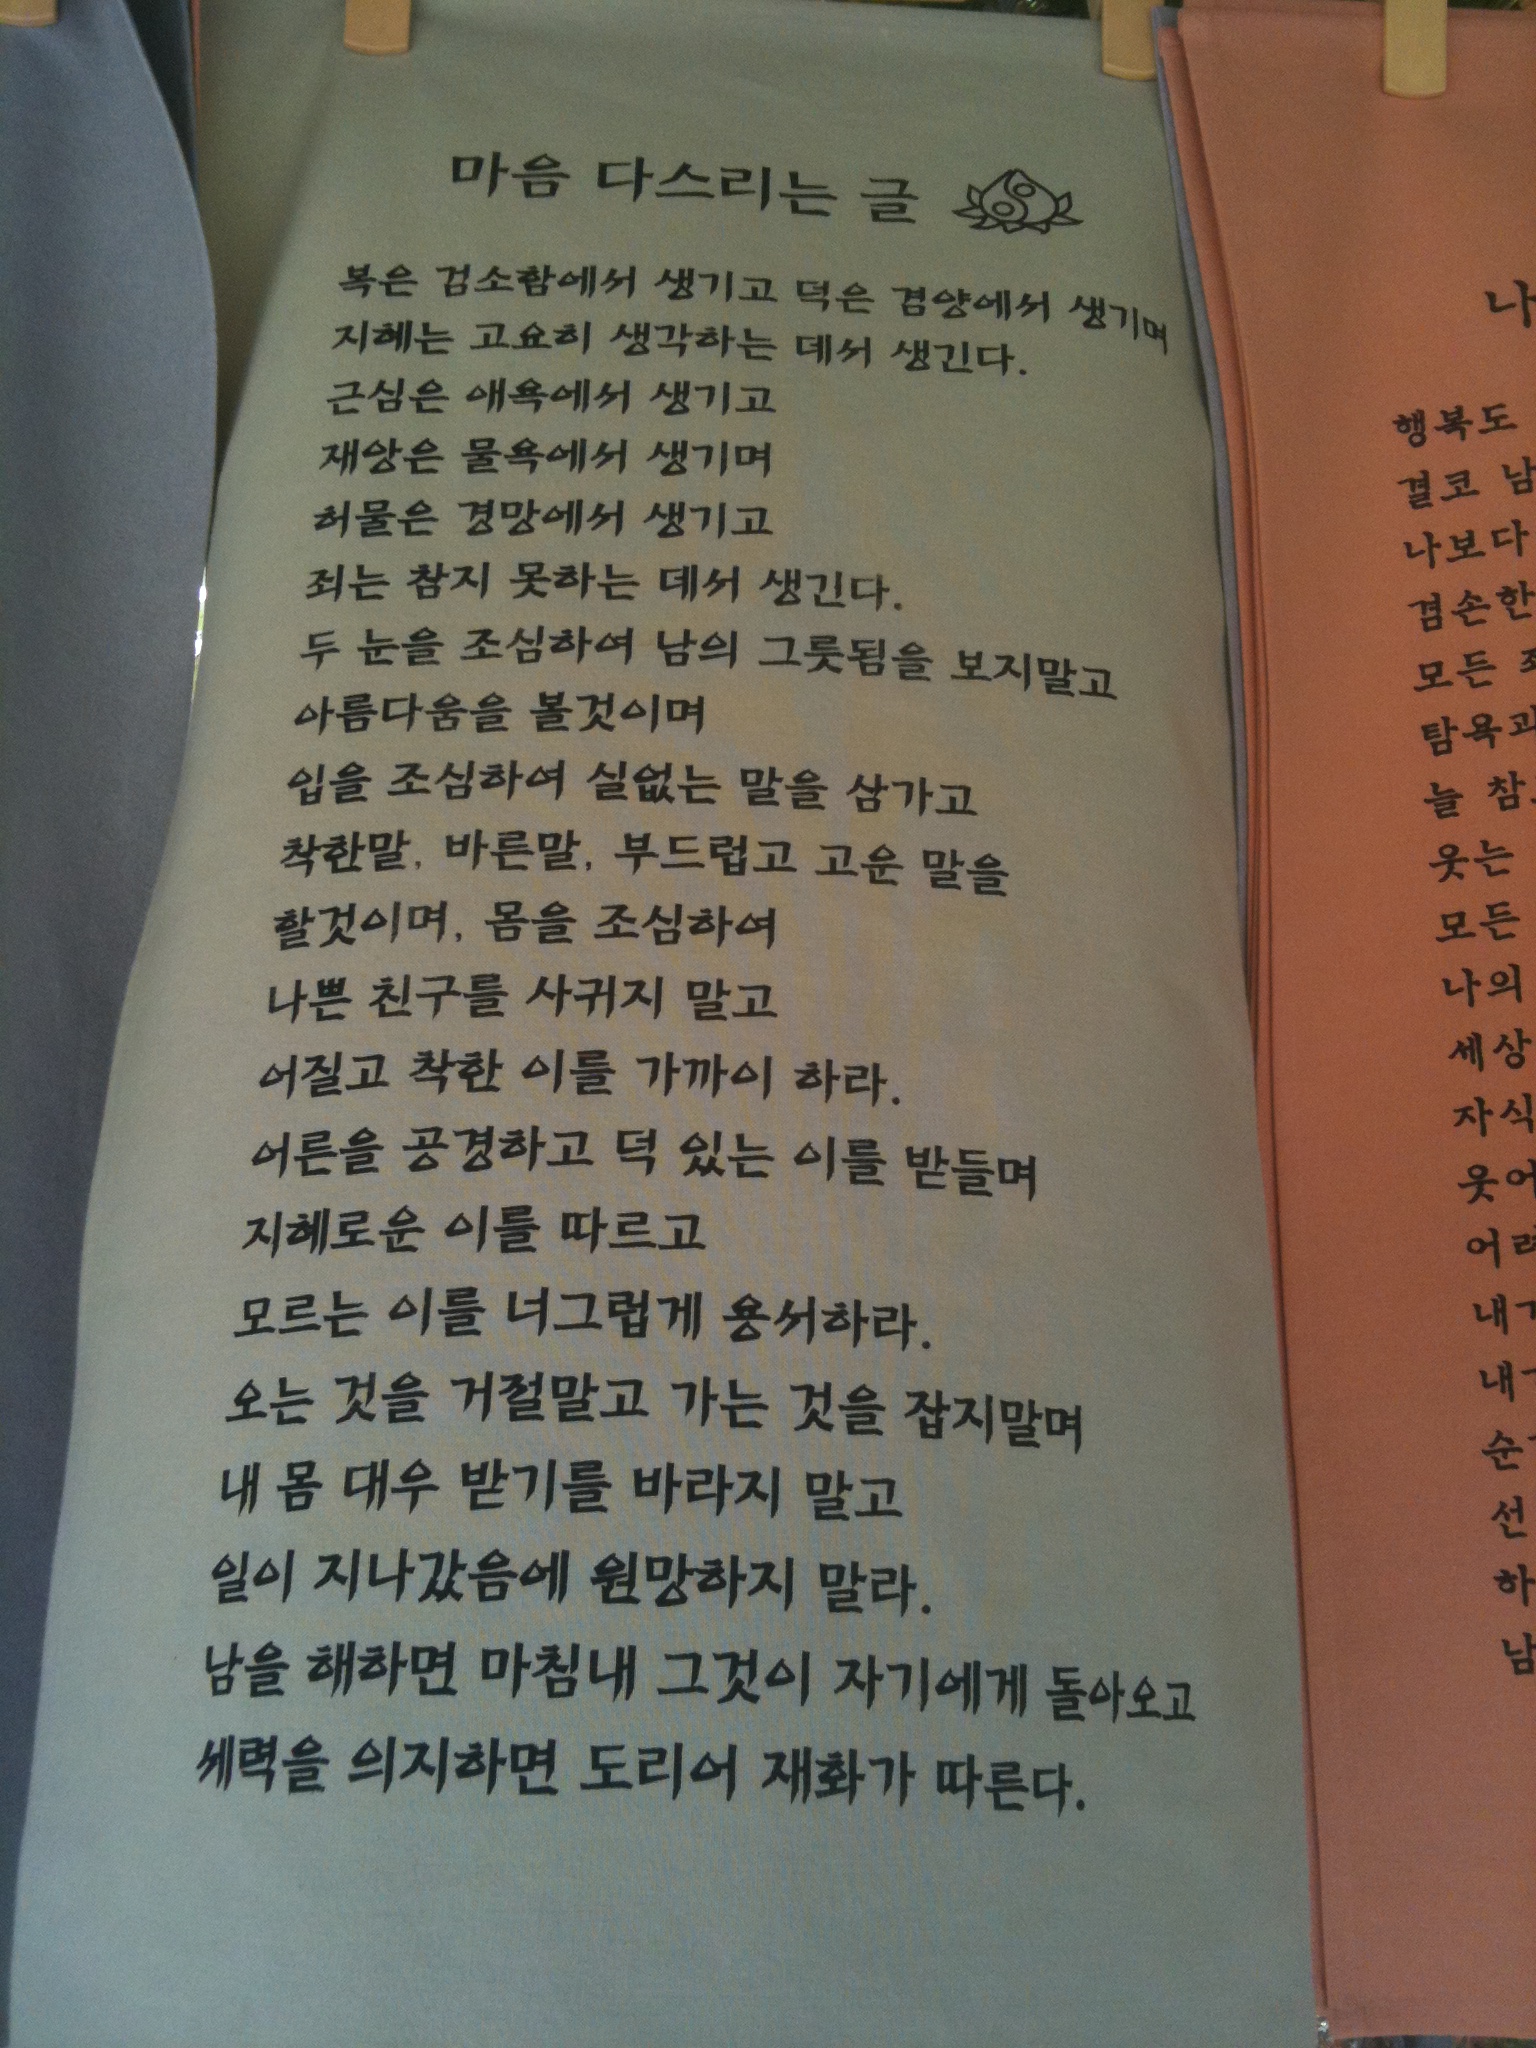 마음 다스리는 글
복은 검소함에서 생기고 덕은 겸양에서 생기며
지혜는 고요히 생각하는 데서 생긴다.
근심은 애욕에서 생기고
재앙은 물욕에서 생기며
허물은 경망에서 생기고
죄는 참지 못하는 데서 생긴다.
두 눈을 조심하여 남의 그릇됨을 보지말고
아름다움을 볼것이며
입을 조심하여 실없는 말을 삼가고
착한말, 바른말, 부드럽고 고운 말을
할것이며, 몸을 조심하여
나쁜 친구를 사귀지 말고
어질고 착한 이를 가까이 하라.
어른을 공경하고 덕 있는 이를 받들며
지혜로운 이를 따르고
모르는 이를 너그럽게 용서하라.
오는 것을 거절말고 가는 것을 잡지말며
내 몸 대우 받기를 바라지 말고
일이 지나갔음에 원망하지 말라.
남을 해하면 마침내 그것이 자기에게 돌아오고
세력을 의지하면 도리어 재화가 따른다.
나
행복도
결코 남
나보다
겸손한
모든
탐욕과
늘 참
웃는
모든
나의
세상
자식
웃어
어려
내
내
순
선
하
남